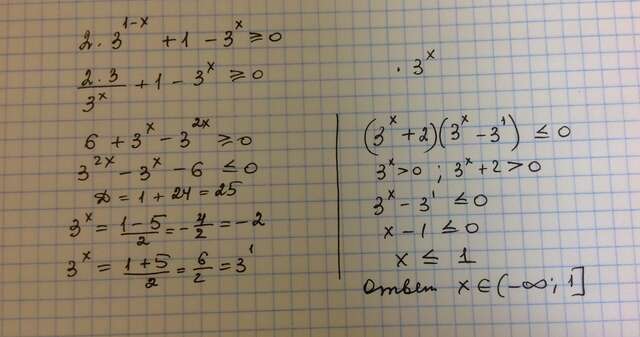 2·3^{1-x} + 1 - 3^x ≥ 0
\frac{2·3}{3^x} + 1 - 3^x ≥ 0
· 3^x
6 + 3^x - 3^{2x} ≥ 0
3^{2x} - 3^x - 6 ≤ 0
D = 1 + 24 = 25
3^x = \frac{1-5}{2} = -\frac{4}{2} = -2
3^x = \frac{1+5}{2} = \frac{6}{2} = 3^1
(3^x + 2)(3^x - 3^1) ≤ 0
3^x > 0 ; 3^x + 2 > 0
3^x - 3^1 ≤ 0
x - 1 ≤ 0
x ≤ 1
Ответ x ∈ (-∞; 1]